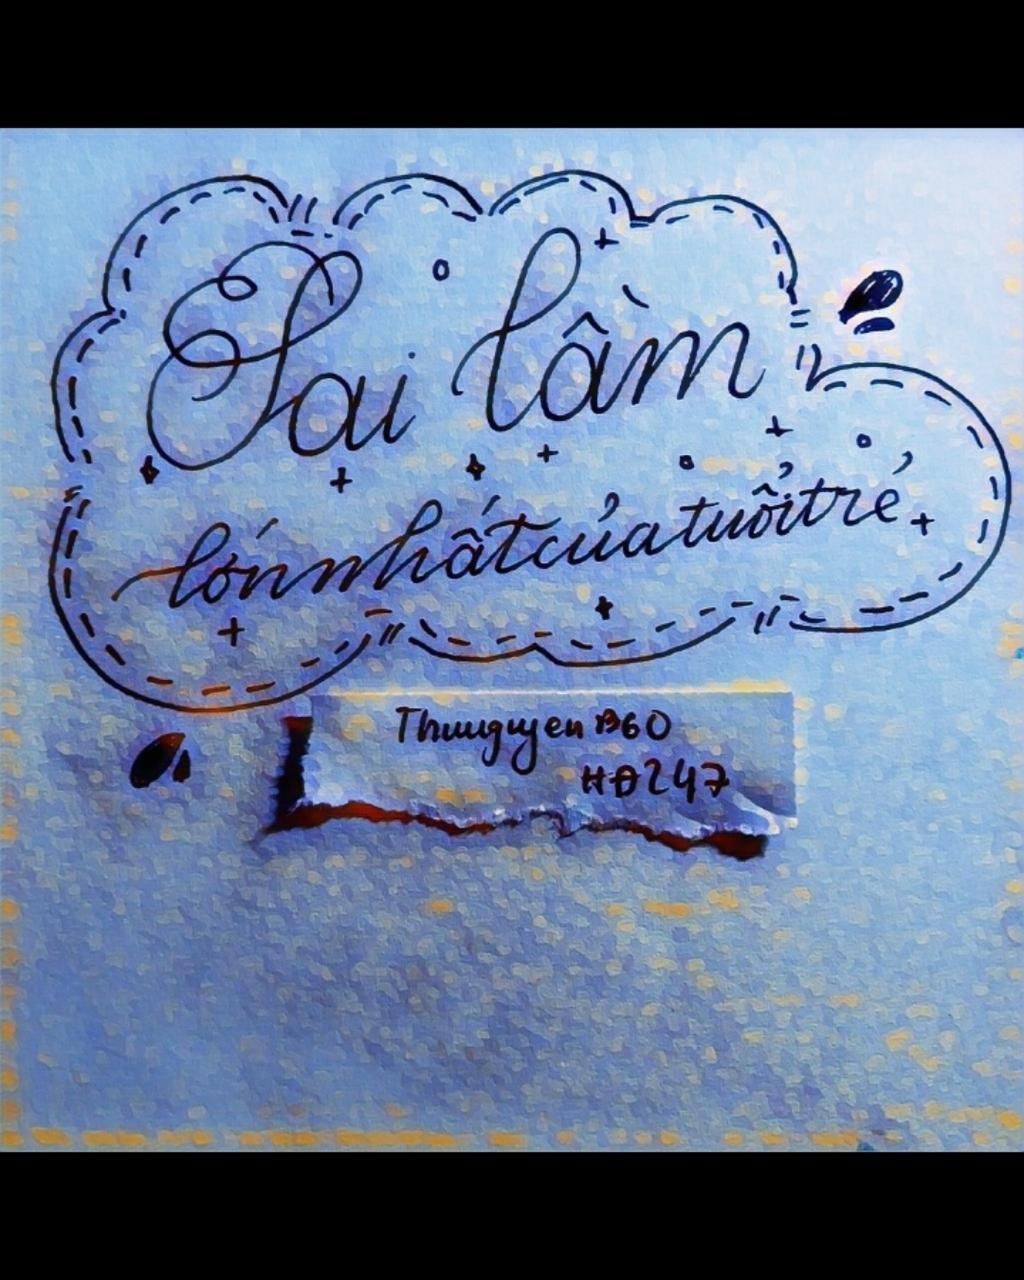 Sai lầm
lớn nhất của tuổi trẻ
Thuuguyen B60
HĐ247